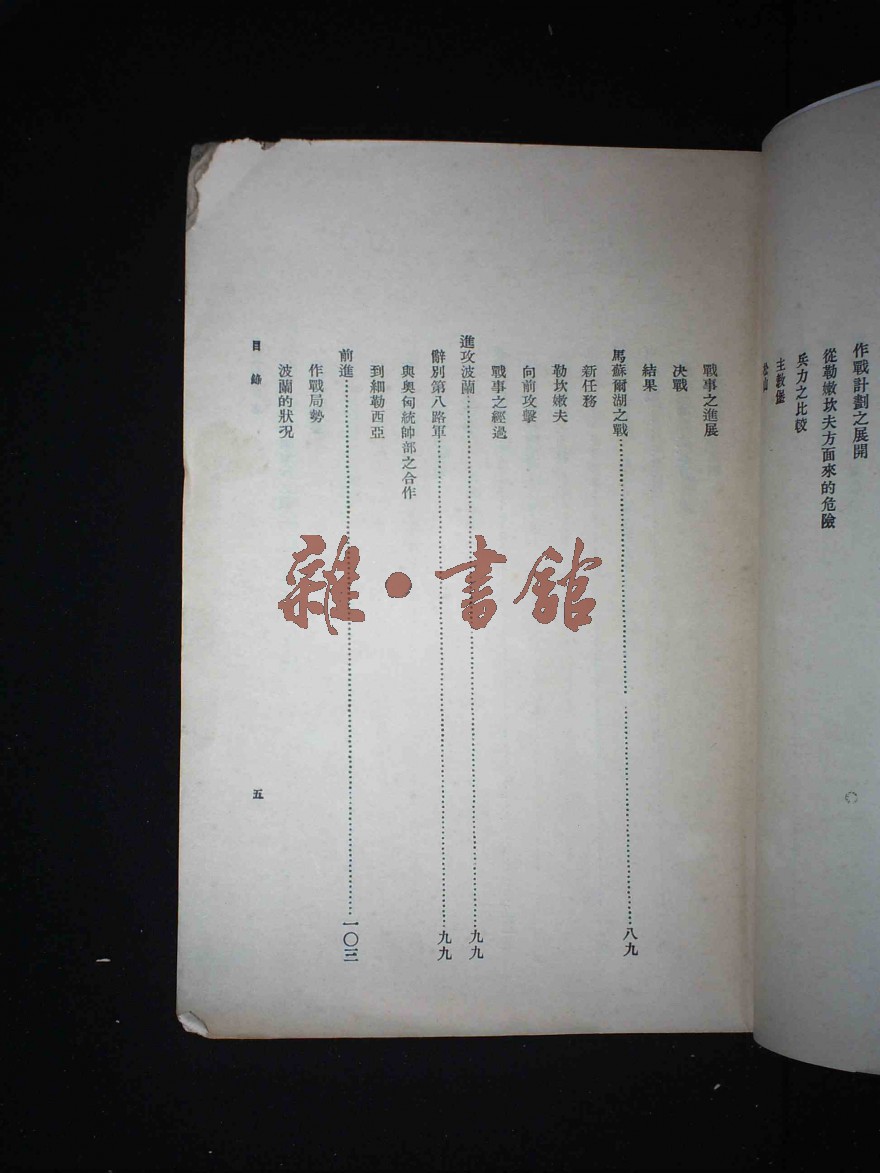 作戰計劃之展開
從勒嫩坎夫方面來的危險
兵力之比較
主教堡
戰事之進展
決戰
結果
馬蘇爾湖之戰……八九
新任務
勒坎嫩夫
向前攻擊
戰事之經過
進攻波蘭……九九
辭別第八路軍……九九
與奥匈統帥部之合作
到細勒西亞
前進……一〇三
作戰局勢
波蘭的狀况
目錄
五
雜·書館